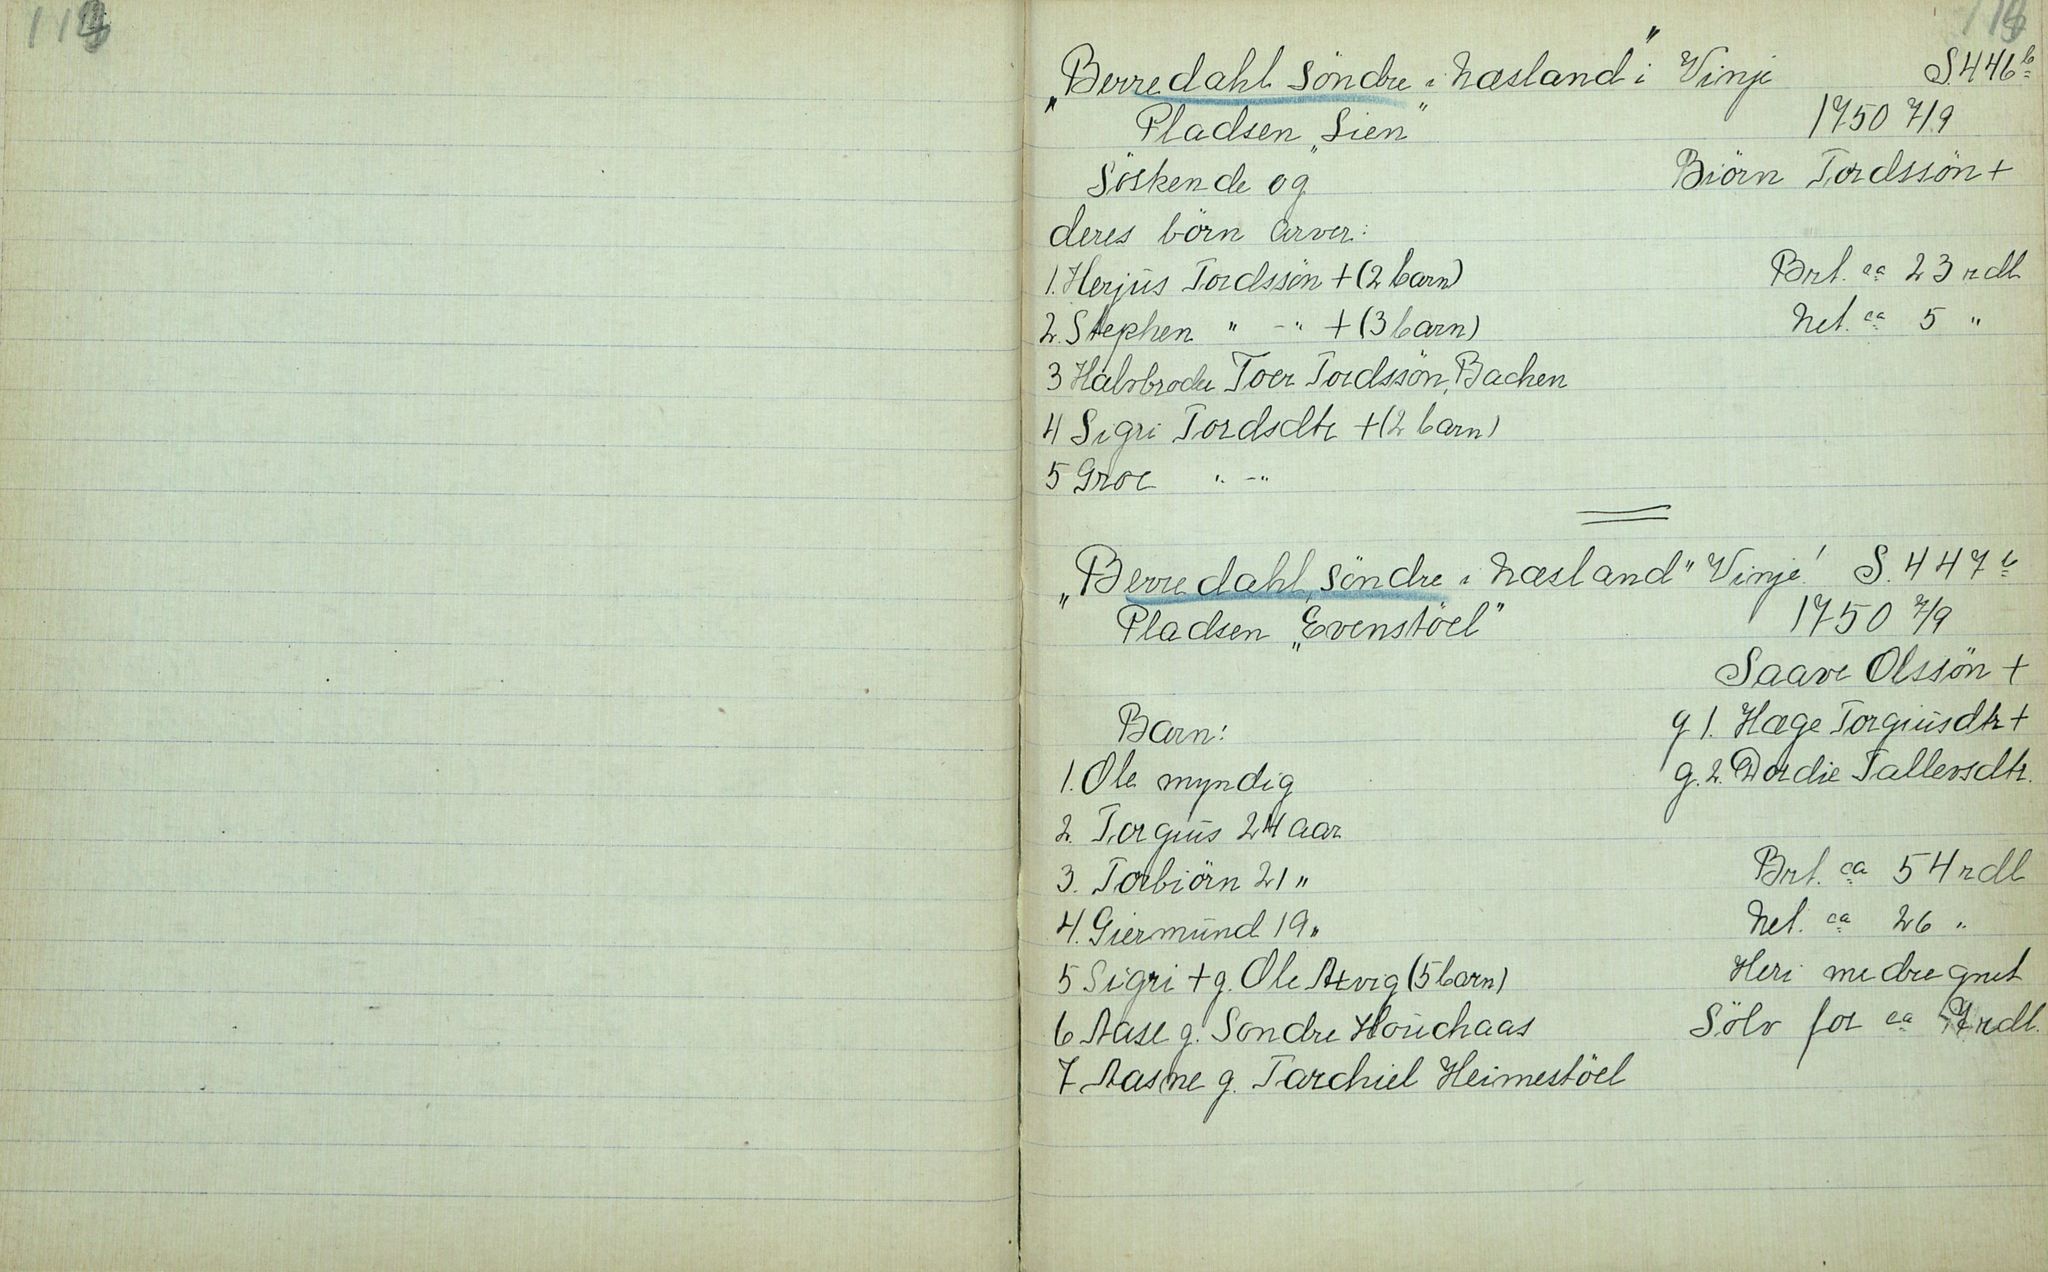 „Berredahl Söndre i Næsland" i Vinje S. 446 b
Pladsen „Lien" 1750 7/9
Söskende og Biörn Tordssön +
deres börn arver:
1. Herjus Tordssön + (2 barn) Brt. ca 23 rdl
2. Stephen " - " + (3 barn) Net. ca 5 "
3 Halvbroder Toer Tordssön, Bachen
4 Sigri Tordsdtr + (2 barn)
5 Groe " - "
„Berredahl, Söndre i Næsland" Vinje! S. 447 b
Pladsen „Evenstöel" 1750 7/9
Saave Olssön +
Barn: g 1. Hæge Torgiusdtr +
1. Ole myndig g. 2. Dordie Tallevsdtr.
2. Torgius 24 aar
3. Torbiörn 21 " Brt. ca 54 rdl
4. Giermund 19 " Net. ca 26 "
5 Sigri + g. Ole Axvig (5 barn) Heri medregnet
6 Aase g. Sondre Houchaas Sölv for ca 7 rdl.
7 Aasne g. Tarchiel Heimestöel